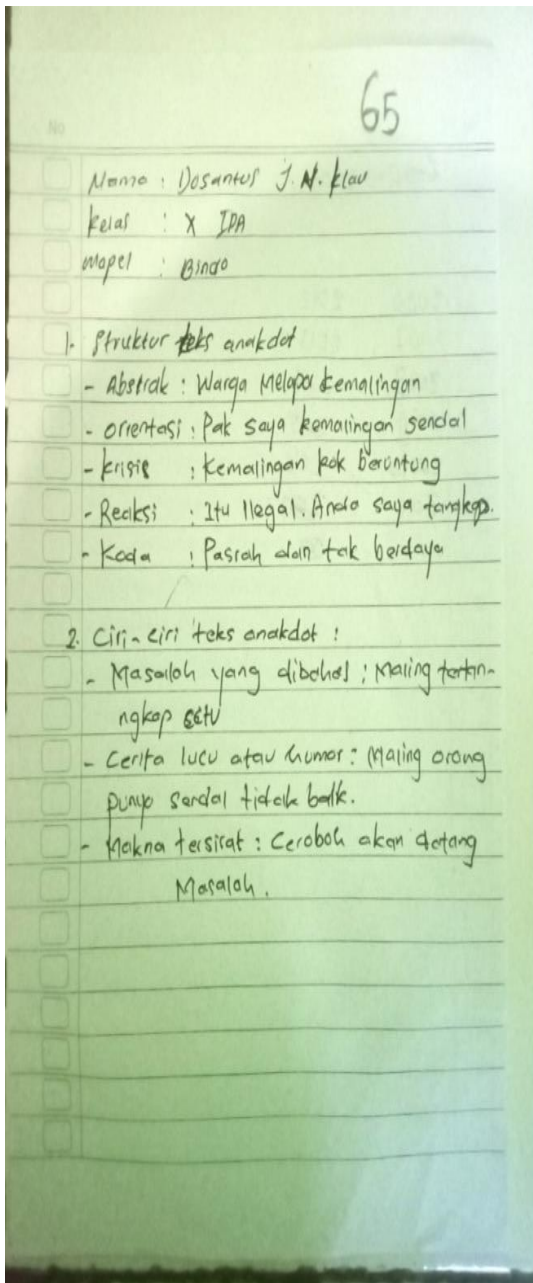 No
65
Nama : Dosantus J. N. klau
kelas : X IPA
mapel : Bindo
1. Struktur teks anakdot
- Abstrak : Warga Melapor kemalingan
- orientasi : Pak saya kemalingan sendal
- krisis : kemalingan kok beruntung
- Reaksi : Itu Ilegal. Anda saya tangkap.
- Koda : Pasrah dan tak berdaya
2. Ciri-ciri teks anakdot :
- Masalah yang dibahas : Maling tertan-
ngkap satu
- Cerita lucu atau humor : Maling orang
punya sendal tidak balik.
- Makna tersirat : Ceroboh akan datang
Masalah.